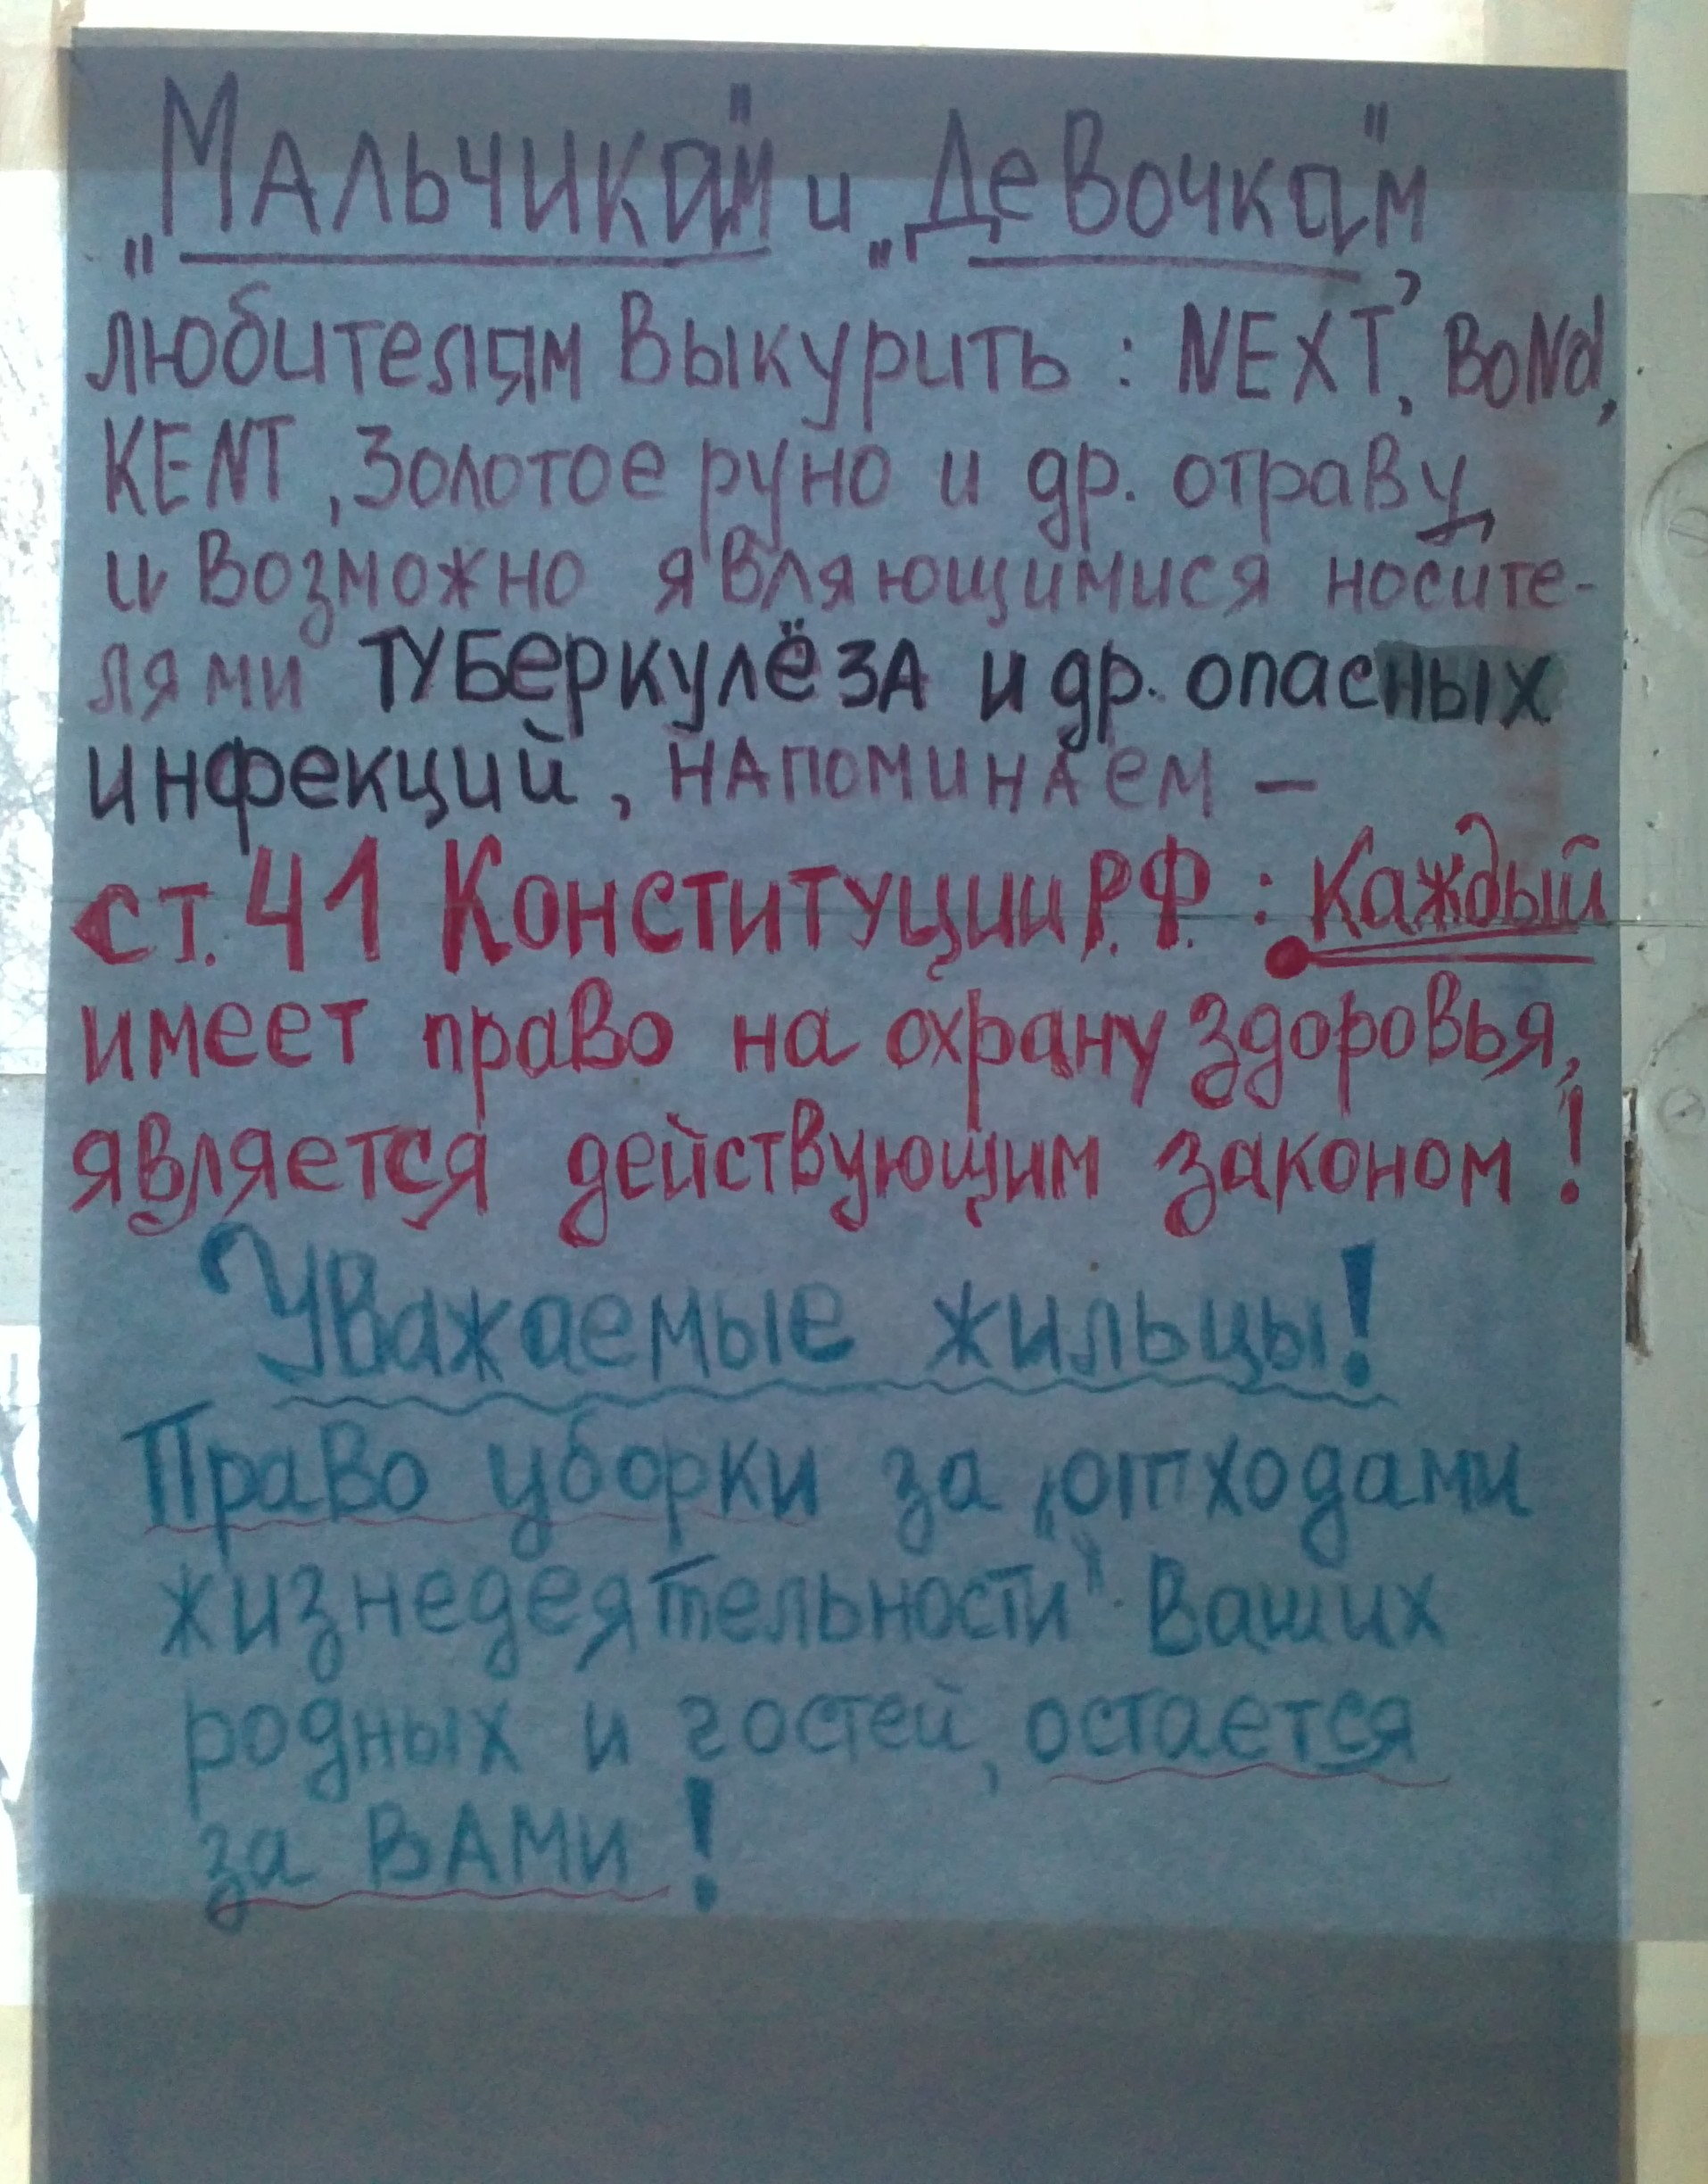 „Мальчикам" и „Девочкам",
любителям выкурить: NEXT, BoNd,
KENT, Золотое руно и др. отраву
и возможно являющимися носите-
лями туберкулёза и др. опасных
инфекций, напоминаем –
ст. 41 Конституции Р.Ф.: Каждый
имеет право на охрану здоровья,
является действующим законом!
Уважаемые жильцы!
Право уборки за „отходами
жизнедеятельности" Ваших
родных и гостей, остается
за ВАМИ!